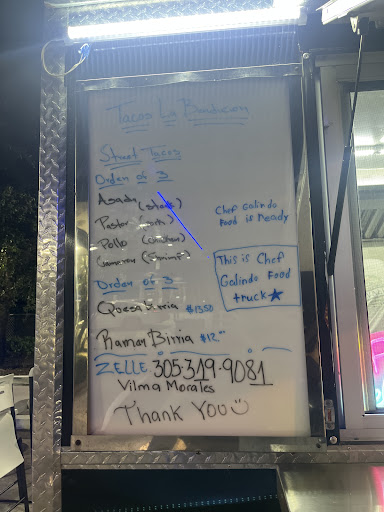 Tacos La Bendicion
Street Tacos
Orden of 3
Asada (steak)
Pastor (pork)
Pollo (chicken)
Camaron (Shrimp)
Orden of 3
Quesa Birria $13.50
Ramen Birria $12.00
ZELLE 305-319-9081
Vilma Morales
Thank You
Chef Galindo
Food is Ready
This is Chef
Galindo Food
truck